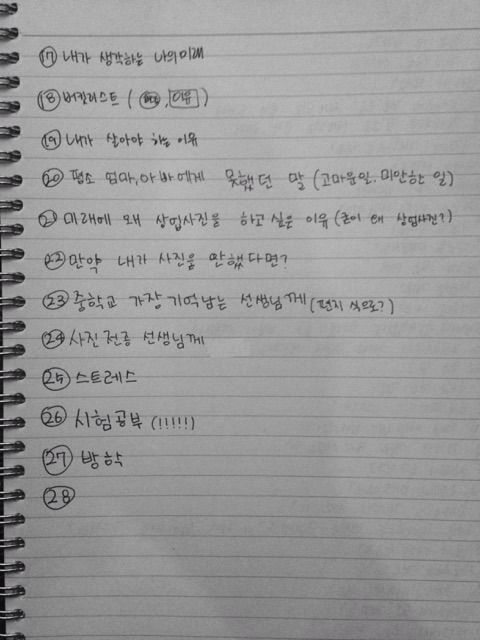 ⑰ 내가 생각하는 나의미래
⑱ 버킷리스트 ( , 이유 )
⑲ 내가 살아야 하는 이유
⑳ 평소 엄마, 아빠에게 못했던 말 (고마운일. 미안한 일)
㉑ 미래에 왜 상업사진을 하고 싶은 이유 (굳이 왜 상업사진?)
㉒ 만약 내가 사진을 안했다면?
㉓ 중학교 가장 기억남는 선생님께 (편지 식으로?)
㉔ 사진 전공 선생님께
㉕ 스트레스
㉖ 시험공부 (!!!!!!)
㉗ 방학
㉘